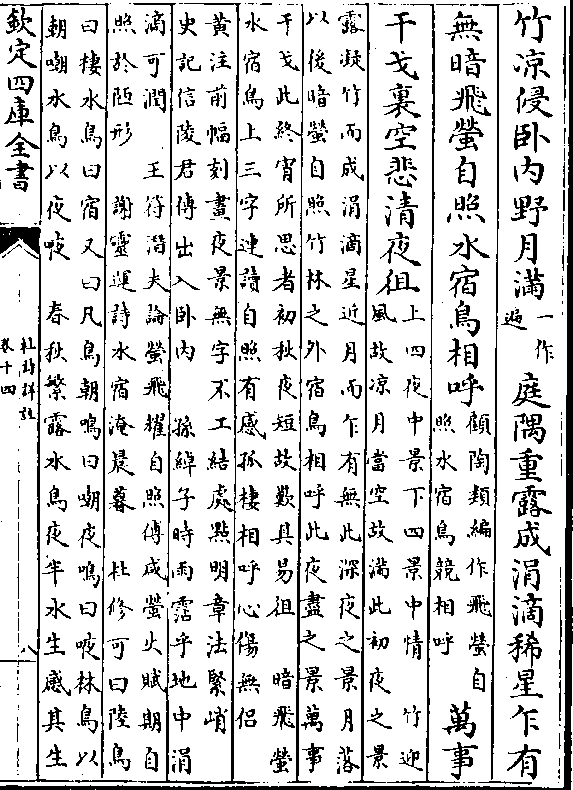 竹凉侵卧内野月滿一作遍庭隅重露成涓滴稀星乍有
無暗飛螢自照水宿鳥相呼顧陶類編作飛螢自照水宿鳥競相呼萬事
干戈裏空悲清夜徂上四夜中景下四景中情 竹迎
風故凉月當空故滿此初夜之景
露凝竹而成涓滴星近月而乍有無此深夜之景月落
以後暗螢自照竹林之外宿鳥相呼此夜盡之景萬事
干戈此終宵所思者初秋夜短故歎其易徂 暗飛螢
水宿鳥上三字連讀自照有感孤棲相呼心傷無侣
黄注前幅刻畫夜景無字不工結處點明章法緊峭
史記信陵君傳出入卧内 孫綽子時雨霑乎地中涓
滴可潤 王符潛夫論螢飛耀自照傅咸螢火賦期自
照於陋形 謝靈運詩水宿淹晨暮 杜修可曰陸鳥
曰棲水鳥曰宿又曰凡鳥朝鳴曰嘲夜鳴曰㖡林鳥以
朝嘲水鳥以夜㖡 春秋繁露水鳥夜半水生感其生
欽定四庫全書
杜詩詳註
卷十四
八